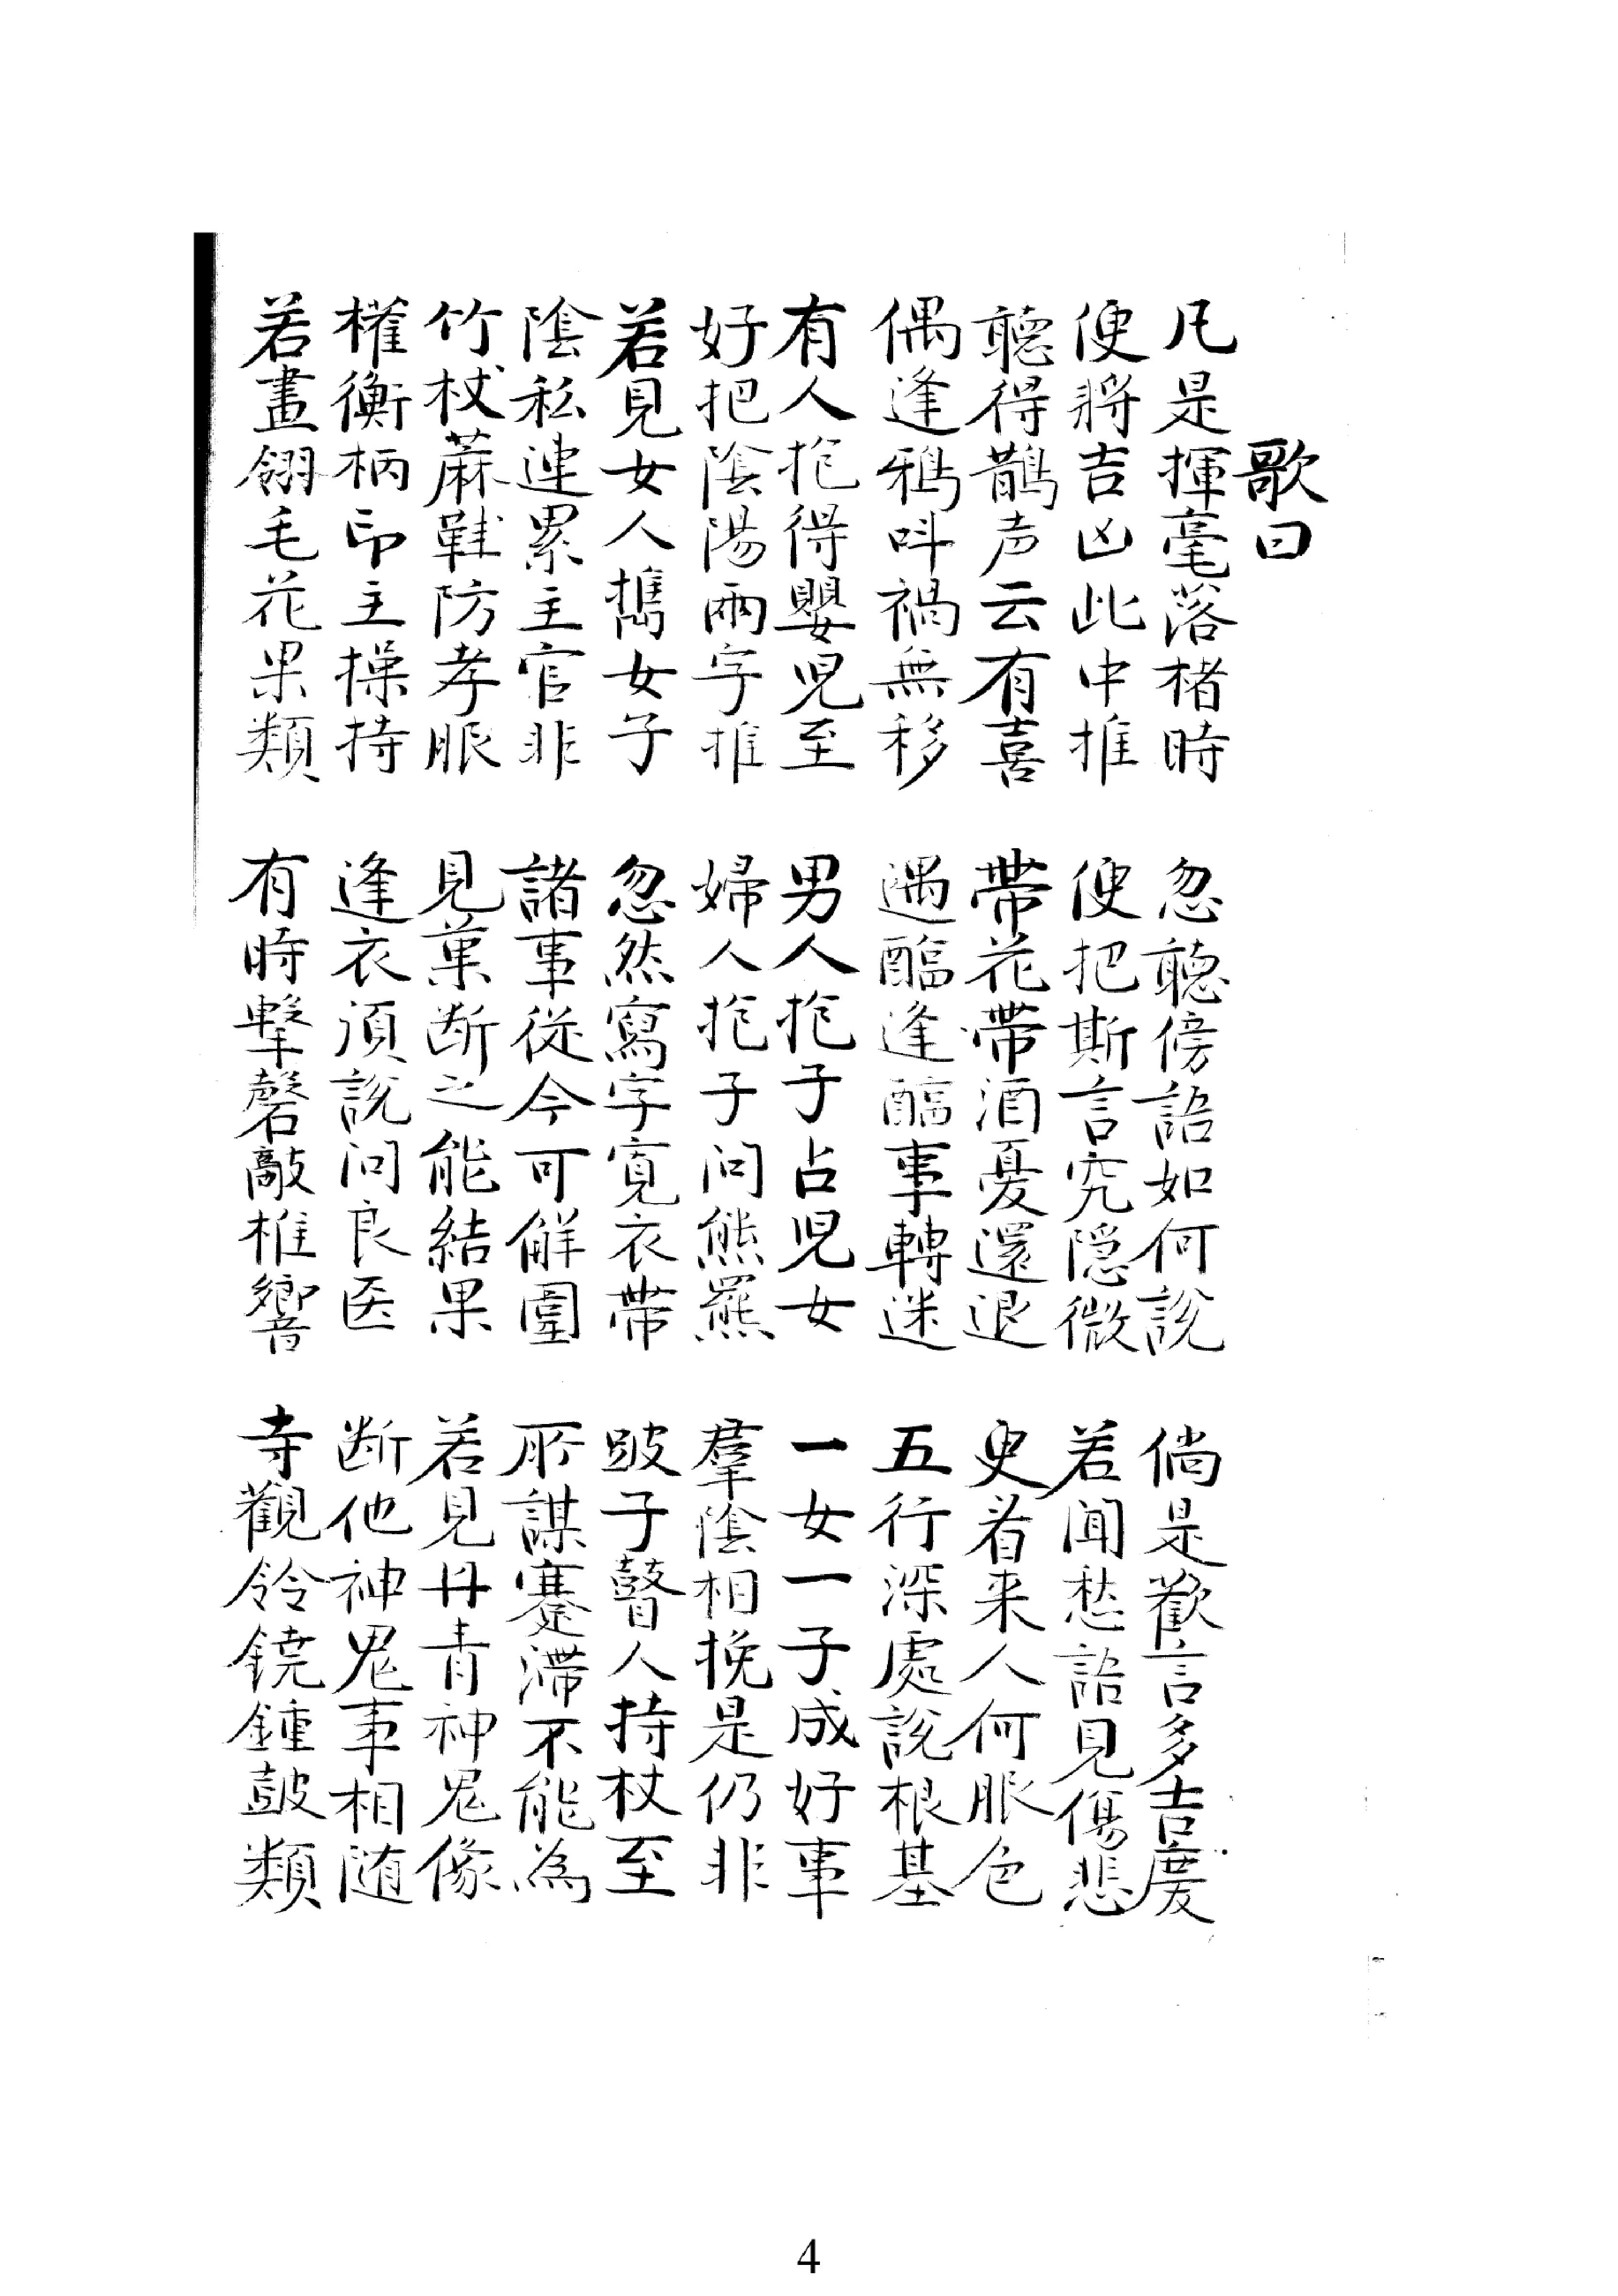 歌曰
凡是揮毫落楮時 忽聽傍語如何說 倘是歡言多吉慶
便將吉凶此中推 便把斯言究隱微 若聞愁語見傷悲
聽得鵲声云有喜 帶花帶酒憂還退 更看来人何服色
偶逢鴉呌禍無移 遇醢逢醢事轉迷 五行深處說根基
有人抱得嬰児至 男人抱子占児女 一女一子成好事
好把陰陽兩字推 婦人抱子问熊羆 羣陰相挽是仍非
若見女人擕女子 忽然寫字寬衣帶 跛子瞽人持杖至
陰私連累主官非 諸事從今可觧圍 所謀蹇滯不能為
竹杖蔴鞋防孝服 見菓断之能結果 若見丹青神鬼像
權衡柄印主操持 逢衣須說问良医 断他神鬼事相随
若畫翎毛花果類 有時擊磬敲椎響 寺觀鈴鐃鍾皷類
4